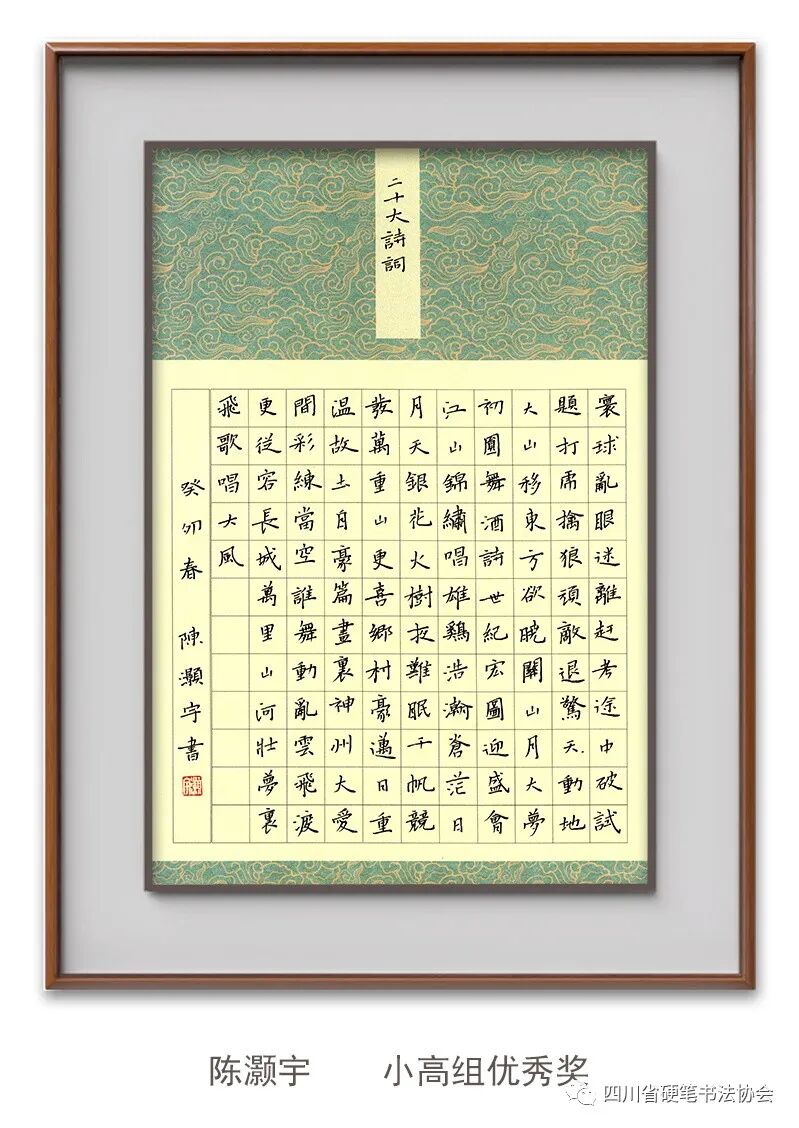 二十大詩詞
寰球亂眼迷離赶考途中破試
題打虎擒狼頑敵退驚天動地
大山移東方欲曉關山月大夢
初圓舞酒詩世紀宏圖迎盛會
江山錦繡唱雄鷄浩瀚蒼茫日
月天銀花火樹夜難眠千帆競
發萬重山更喜鄉村豪邁日重
温故土日豪篇畫裏神州大愛
間彩練當空誰舞動亂雲飛渡
更從容長城萬里山河壯夢裏
飛歌唱大風
癸卯春 陳灝宇書
陈灏宇 小高组优秀奖
四川省硬笔书法协会